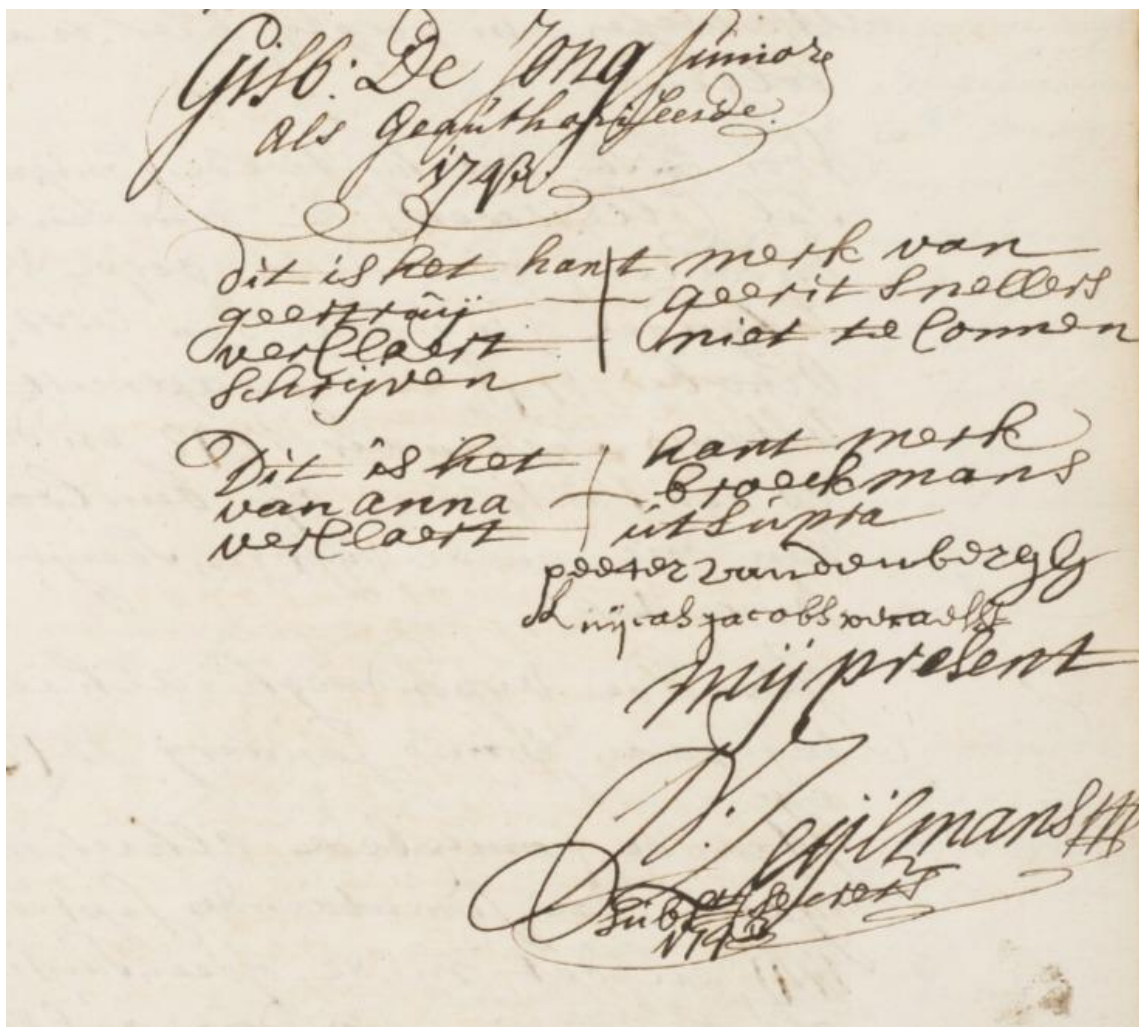 Gisb: De Jong Junior
als Geauthoriseerde
1793
dit is het hant merk van
geertruij geerit snellers
verclaert niet te connen
schrijven
Dit is het hant merk
van anna broeckmans
verclaert ut supra
peeter vandenbergh
jacobs
mij present
D:
subst secrets
1793